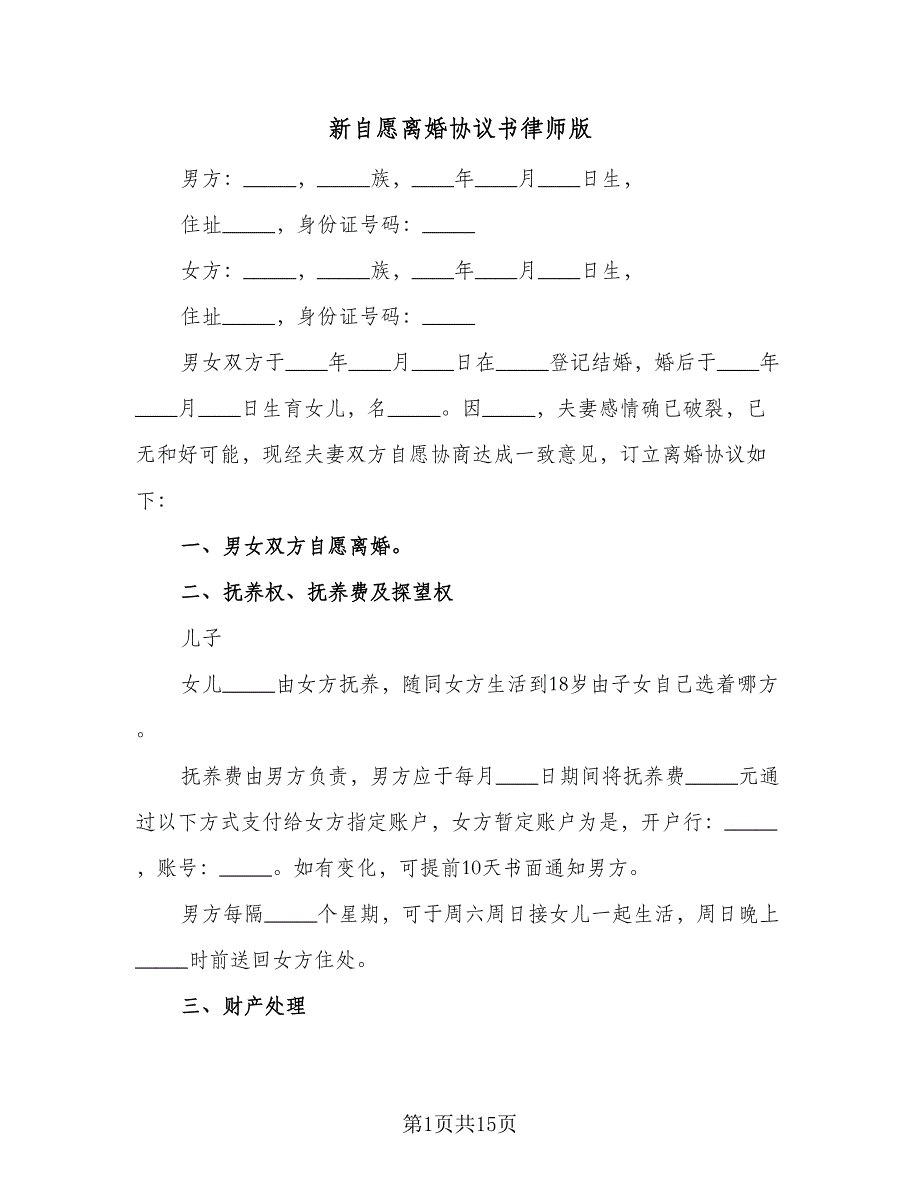 新自愿离婚协议书律师版
男方：_____，_____族，____年____月____日生，
住址_____，身份证号码：_____
女方：_____，_____族，____年____月____日生，
住址_____，身份证号码：_____
男女双方于____年____月____日在_____登记结婚，婚后于____年
____月____日生育女儿，名_____。因_____，夫妻感情确已破裂，已
无和好可能，现经夫妻双方自愿协商达成一致意见，订立离婚协议如
下：
一、男女双方自愿离婚。
二、抚养权、抚养费及探望权
儿子
女儿_____由女方抚养，随同女方生活到18岁由子女自己选着哪方
。
抚养费由男方负责，男方应于每月____日期间将抚养费_____元通
过以下方式支付给女方指定账户，女方暂定账户为是，开户行：_____
，账号：_____。如有变化，可提前10天书面通知男方。
男方每隔_____个星期，可于周六周日接女儿一起生活，周日晚上
_____时前送回女方住处。
三、财产处理
第1页共15页